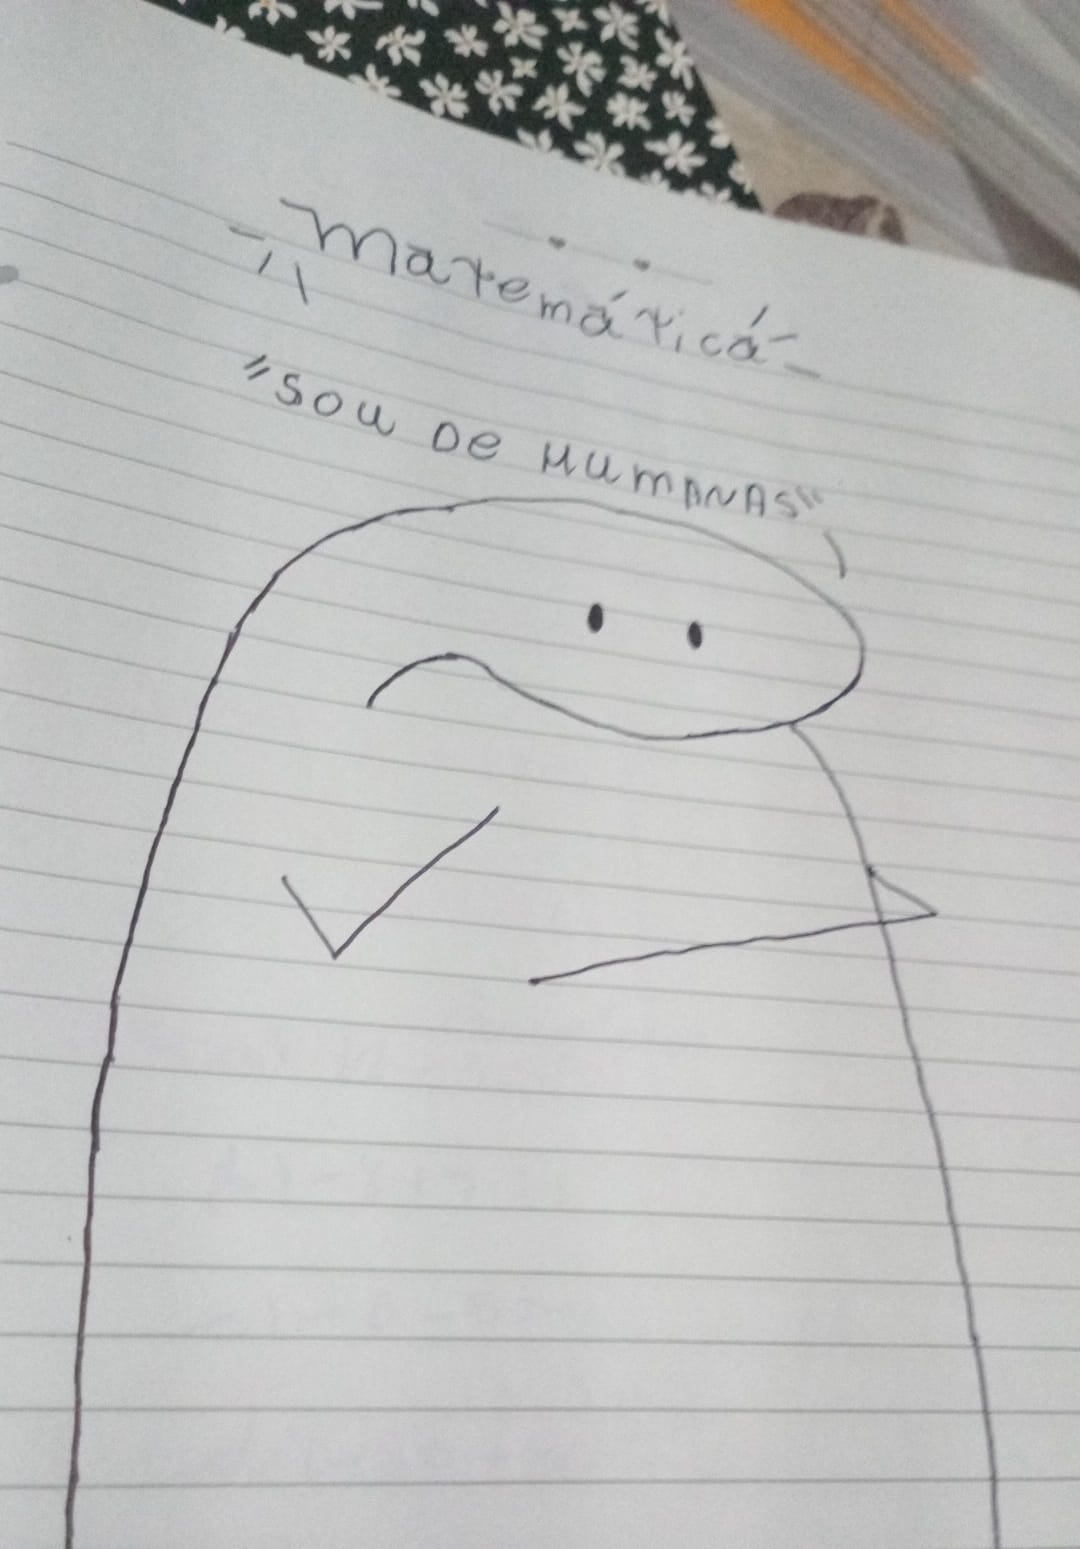 Matemática
"SOU DE HUMANAS"